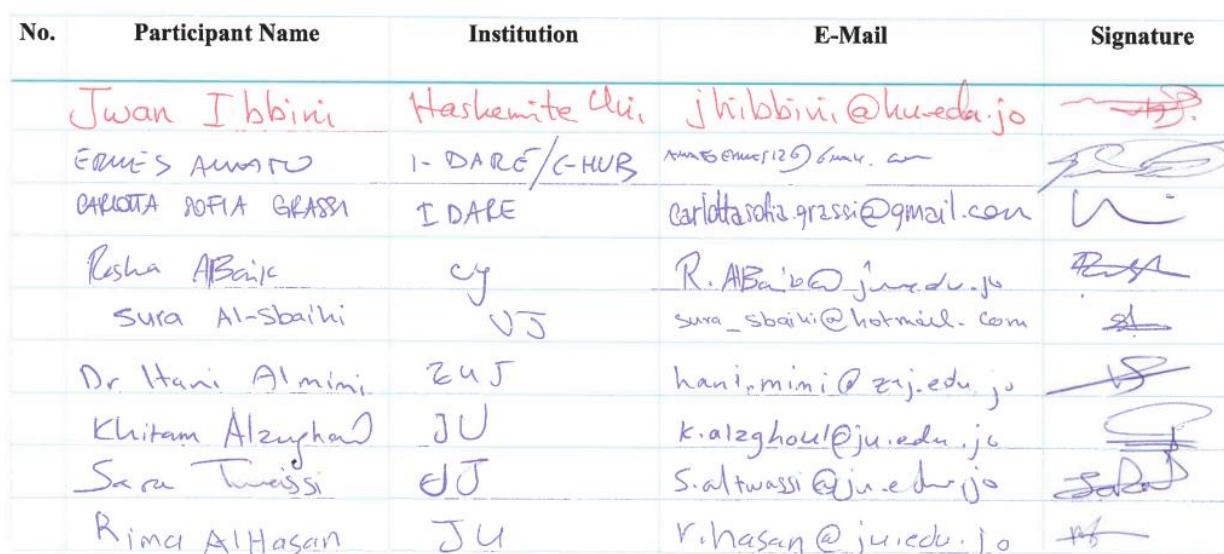 No. Participant Name Institution E-Mail Signature
Jwan Ibbini Hashemite Uni, jhibbini@hu.edu.jo
I-DARE/C-HUB
CARLOTTA SOFIA GRASSI I DARE carlottasofia.grassi@gmail.com
Rasha
Sura Al-Sbaihi UJ sura_sbaihi@hotmail.com
Dr Hani Almimi ZUJ hani.mimi@zuj.edu.jo
Khitam Alzughoul JU k.alzghoul@ju.edu.jo
Sara Tweissi s.altwassi@ju.edu.jo
Rima AlHasan JU r.hasan@ju.edu.jo